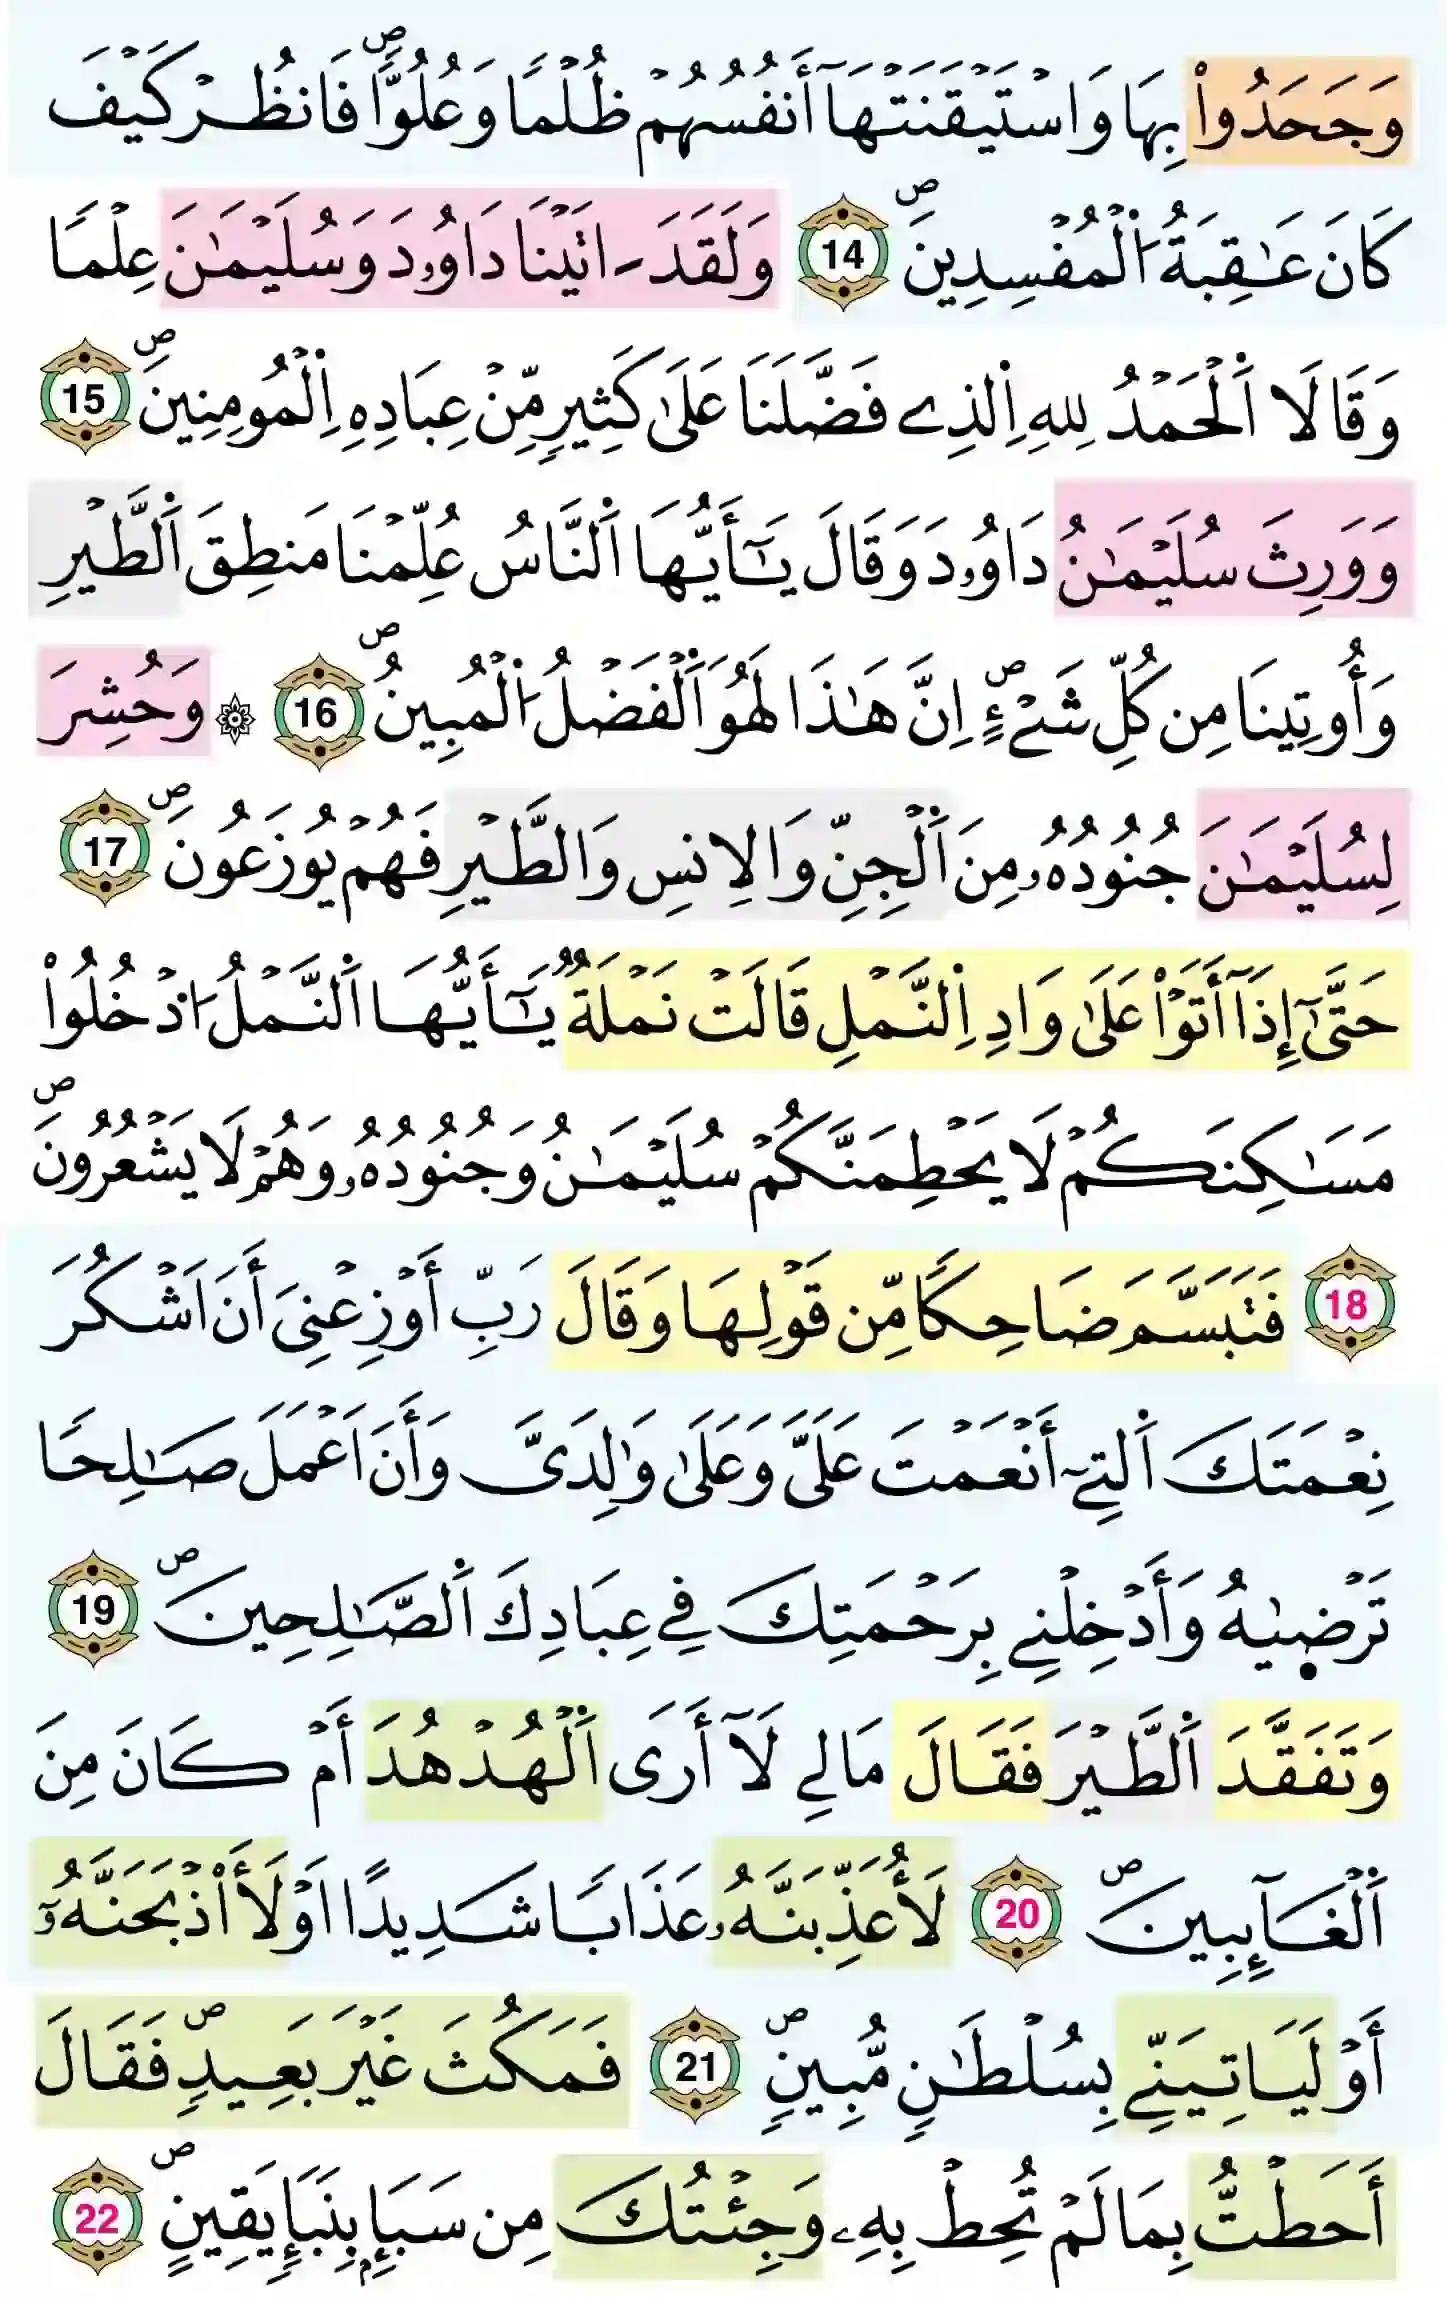 وَجَحَدُواْ بِهَا وَاسْتَيْقَنَتْهَآ أَنفُسُهُمْ ظُلْمًا وَعُلُوًّاۖ فَانظُرْ كَيْفَ
كَانَ عَٰقِبَةُ اُ۬لْمُفْسِدِينَۖ 14 وَلَقَدَ اٰتَيْنَا دَاوُۥدَ وَسُلَيْمَٰنَ عِلْمًا
وَقَالَا اَ۬لْحَمْدُ لِلهِ اِ۬لذِے فَضَّلَنَا عَلَىٰ كَثِيرٍ مِّنْ عِبَادِهِ اِ۬لْمُومِنِينَۖ 15
وَوَرِثَ سُلَيْمَٰنُ دَاوُۥدَ وَقَالَ يَٰٓأَيُّهَا اَ۬لنَّاسُ عُلِّمْنَا مَنطِقَ اَ۬لطَّيْرِ
وَأُوتِينَا مِن كُلِّ شَےْءٍۖ اِنَّ هَٰذَا لَهُوَ اَ۬لْفَضْلُ اُ۬لْمُبِينُۖ 16 ۞ وَحُشِرَ
لِسُلَيْمَٰنَ جُنُودُهُۥ مِنَ اَ۬لْجِنِّ وَالِانسِ وَالطَّيْرِ فَهُمْ يُوزَعُونَۖ 17
حَتَّىٰٓ إِذَآ أَتَوْاْ عَلَىٰ وَادِ اِ۬لنَّمْلِ قَالَتْ نَمْلَةٌ يَٰٓأَيُّهَا اَ۬لنَّمْلُ اُ۟دْخُلُواْ
مَسَٰكِنَكُمْ لَا يَحْطِمَنَّكُمْ سُلَيْمَٰنُ وَجُنُودُهُۥ وَهُمْ لَا يَشْعُرُونَۖ
18 فَتَبَسَّمَ ضَاحِكًا مِّن قَوْلِهَا وَقَالَ رَبِّ أَوْزِعْنِىَ أَنَ اَشْكُرَ
نِعْمَتَكَ اَ۬لتِےٓ أَنْعَمْتَ عَلَيَّ وَعَلَىٰ وَٰلِدَىَّ وَأَنَ اَعْمَلَ صَٰلِحًا
تَرْضۭيٰهُ وَأَدْخِلْنِے بِرَحْمَتِكَ فِے عِبَادِكَ اَ۬لصَّٰلِحِينَۖ 19
وَتَفَقَّدَ اَ۬لطَّيْرَ فَقَالَ مَالِے لَآ أَرَى اَ۬لْهُدْهُدَ أَمْ كَانَ مِنَ
اَ۬لْغَآئِبِينَۖ 20 لَأُعَذِّبَنَّهُۥ عَذَابًا شَدِيدًا اَوْ لَأَاْذْبَحَنَّهُۥٓ
أَوْ لَيَاتِيَنِّے بِسُلْطَٰنٍ مُّبِينٍۖ 21 فَمَكُثَ غَيْرَ بَعِيدٍۖ فَقَالَ
أَحَطتُّ بِمَا لَمْ تُحِطْ بِهِۦ وَجِئْتُكَ مِن سَبَإٍۢ بِنَبَإٍ يَقِينٍۖ 22